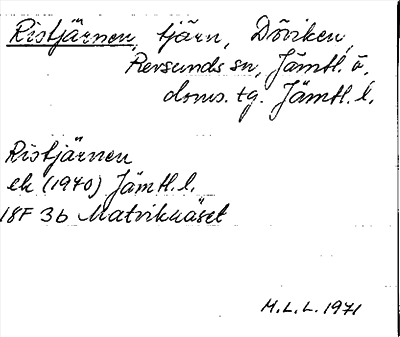 Ristjärnen, tjärn, Döviken,
Revsunds sn, Jämtl. ö.
doms. tg. Jämtl. l.
Ristjärnen
ek (1940) Jämtl. l.
18F 3b Matviknäset
M.L.L. 1971